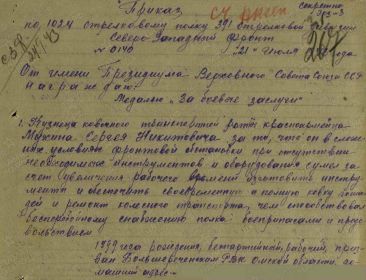 Приказ
Секретно
по 1024 стрелковому полку 391 стрелковой дивизии
Северо Западный фронт
№ 0140 "21" Июля года
От имени Президиума Верховного Совета Союза ССР
награждаю:
Медалью "За боевые заслуги"
1. Кузнеца транспортной роты красноармейца
Сергея Никитовича за то, что он в сложных
условиях фронтовой обстановки при отсутствии
необходимых инструментов и оборудования сумел за
счет рабочего времени изготовить инструмента
и обеспечить своевременную и полную ковку лошадей
и ремонт колесного транспорта, чем способствовал
бесперебойному снабжению полка: боеприпасами и продовольствием
1899 года рождения беспартийный, рабочий, призван
Большереченским РВК Омской области,